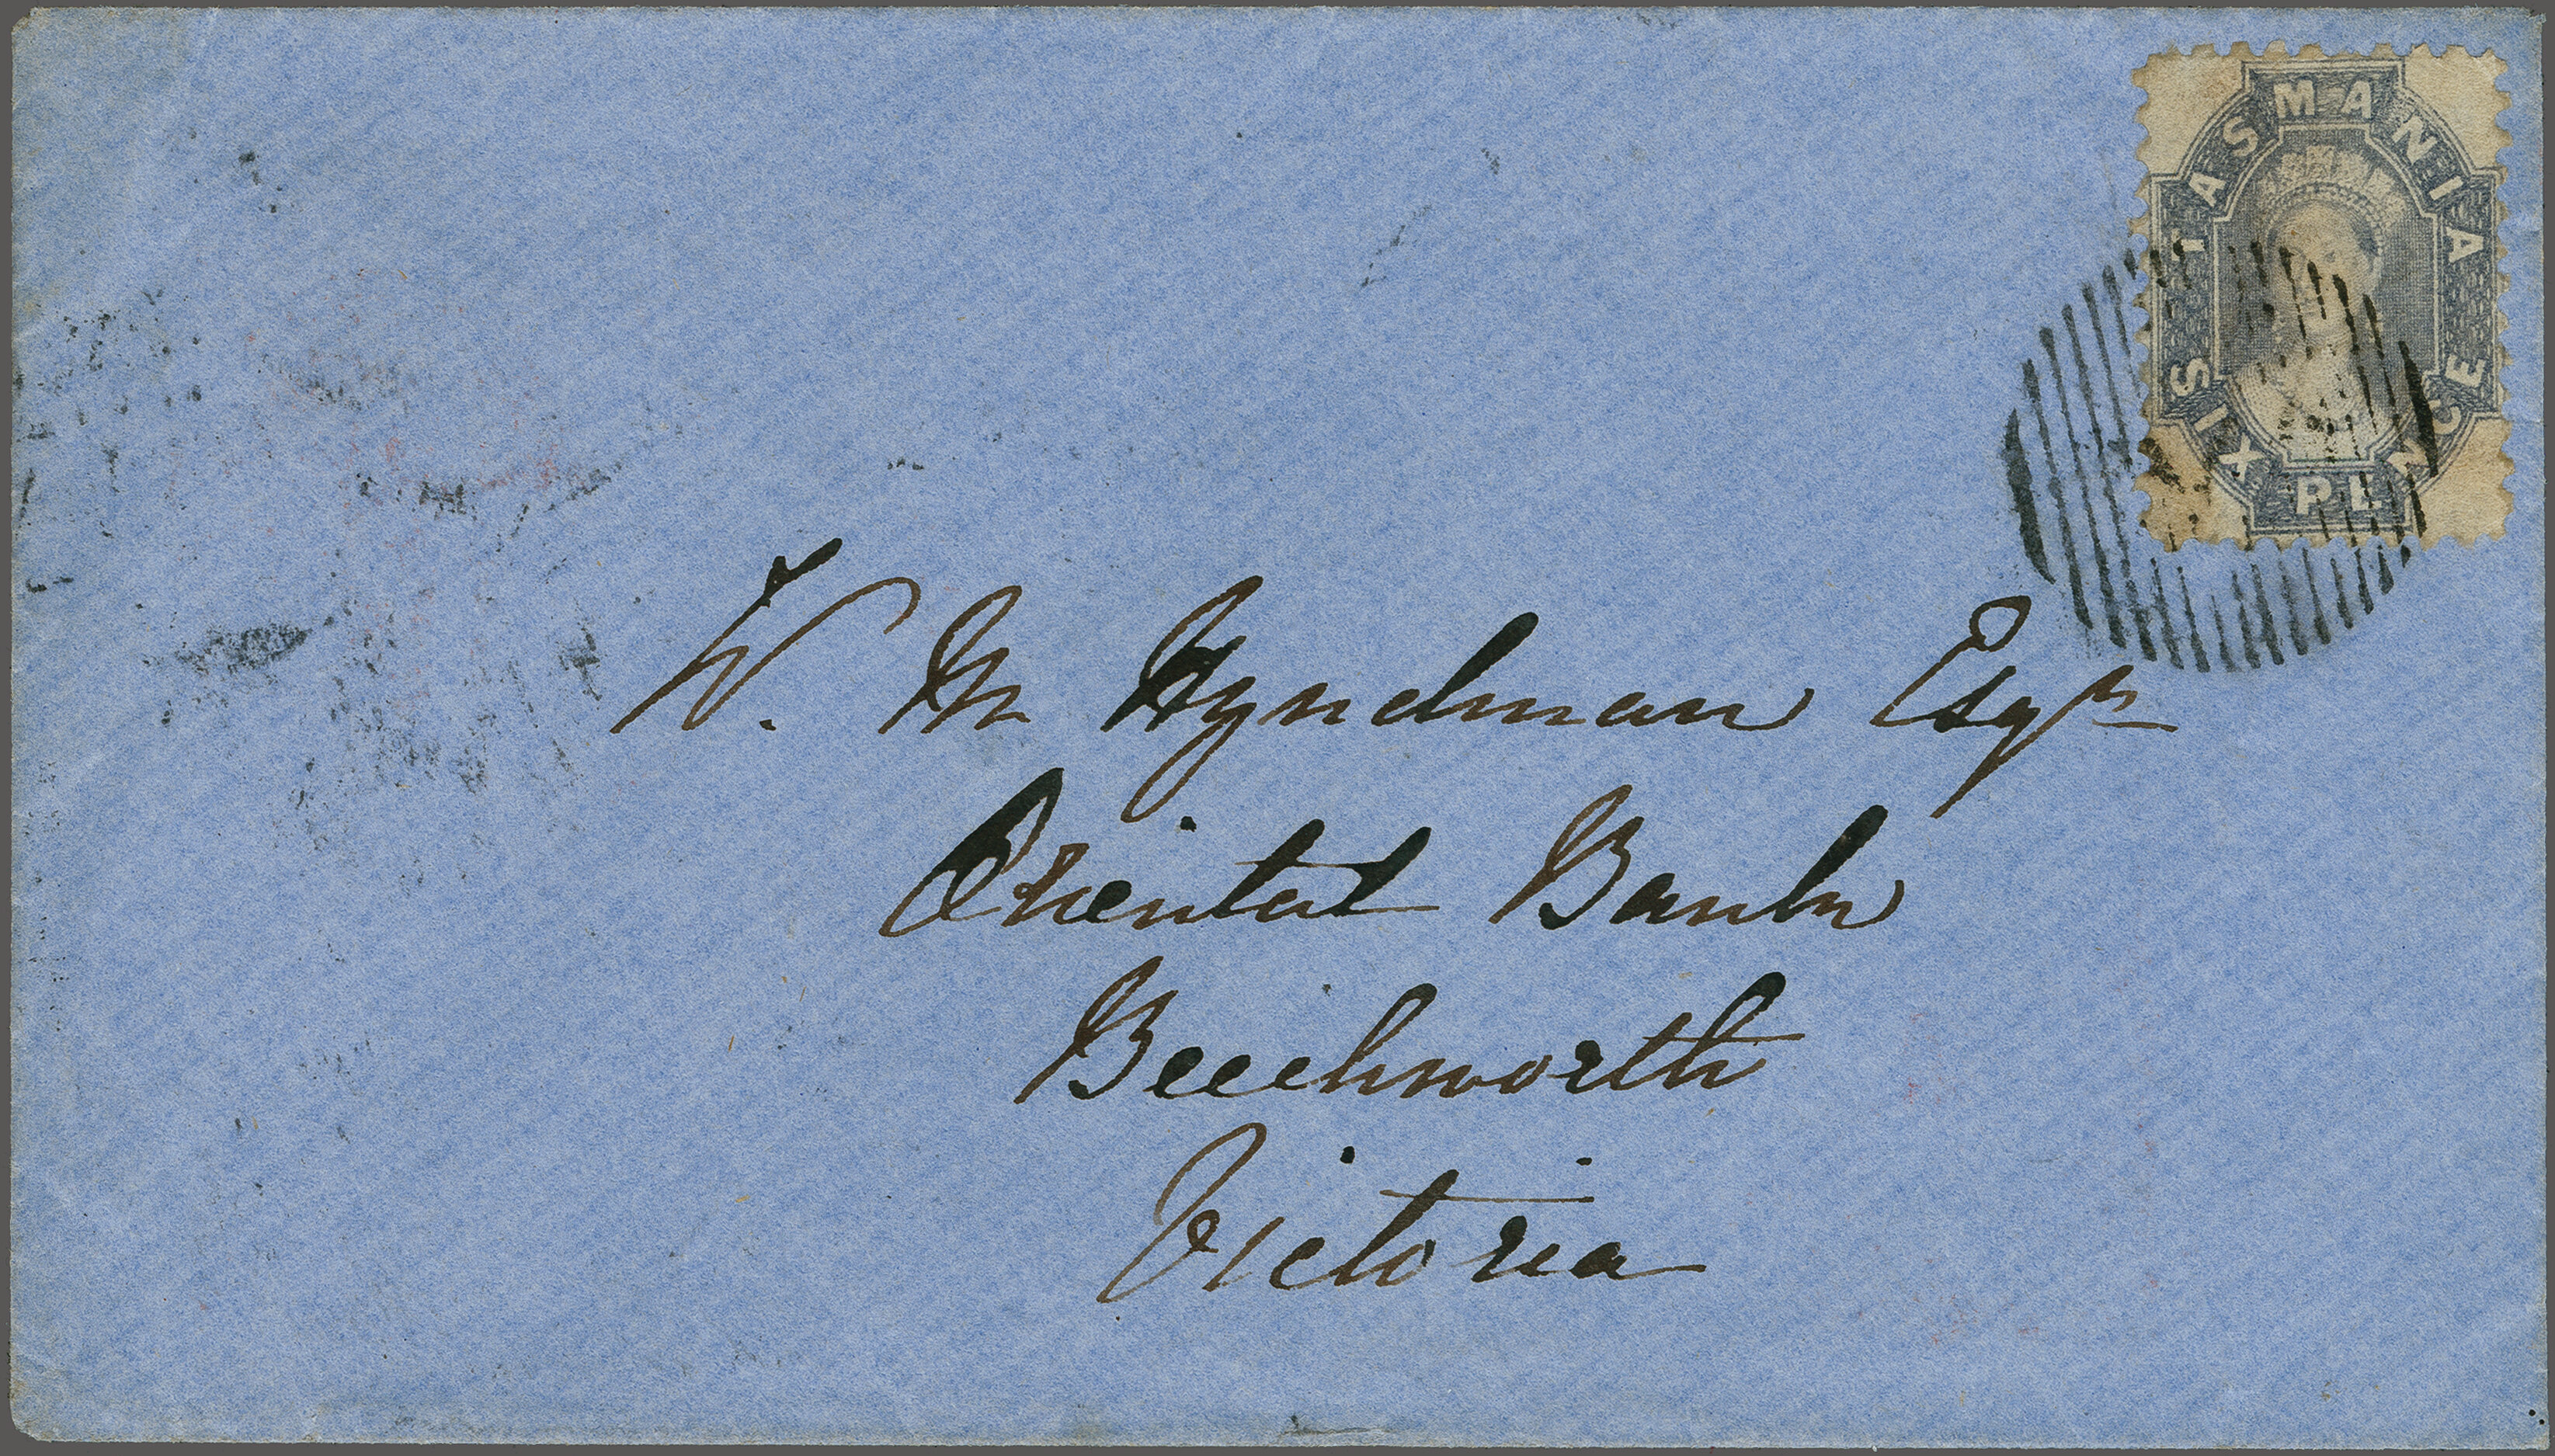 TASMANIA
SIXPENCE
W. M. Hyndman Esqr
Oriental Bank
Beechworth
Victoria